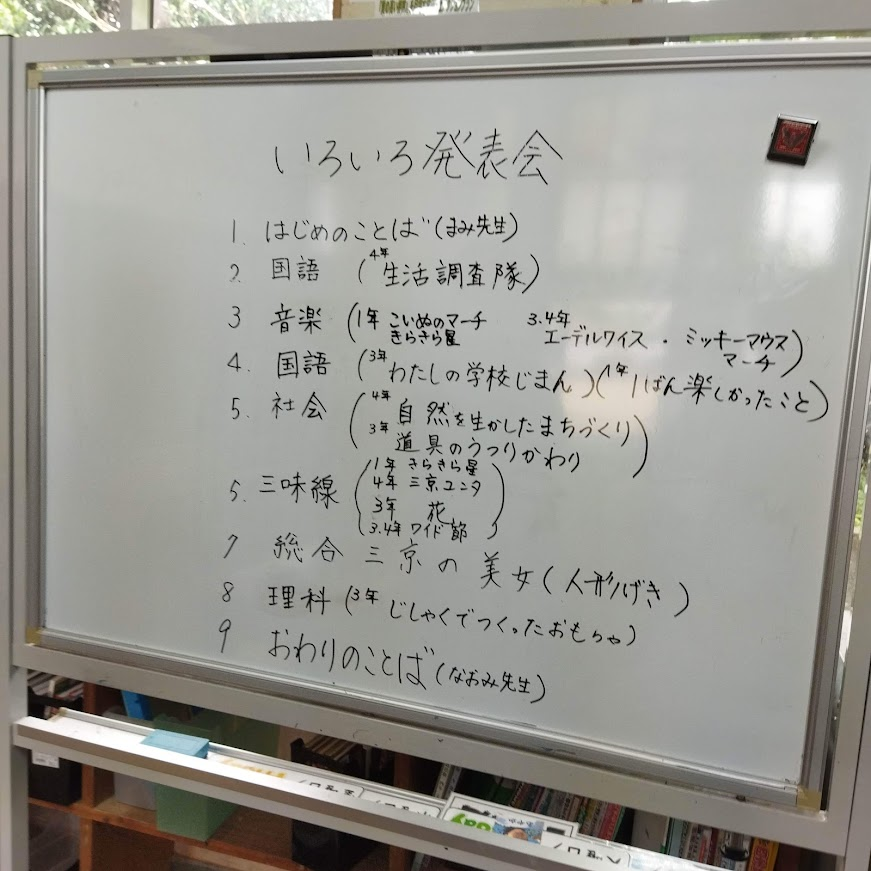 いろいろ発表会
1. はじめのことば (まみ先生)
2. 国語 (4年 生活調査隊)
3 音楽 (1年 こいぬのマーチ 3.4年
きらきら星 エーデルワイス・ミッキーマウス
マーチ)
4. 国語 (3年 わたしの学校じまん) (1年 1ばん楽しかったこと)
5. 社会 (4年 自然を生かしたまちづくり
3年 道具のうつりかわり)
6. 三味線 (1年 きらきら星
4年 三京ユンタ
3年 花
3.4年 ワイド節)
7 総合 三京の美女 (人形げき)
8 理科 (3年 じしゃくでつくったおもちゃ)
9 おわりのことば (なおみ先生)